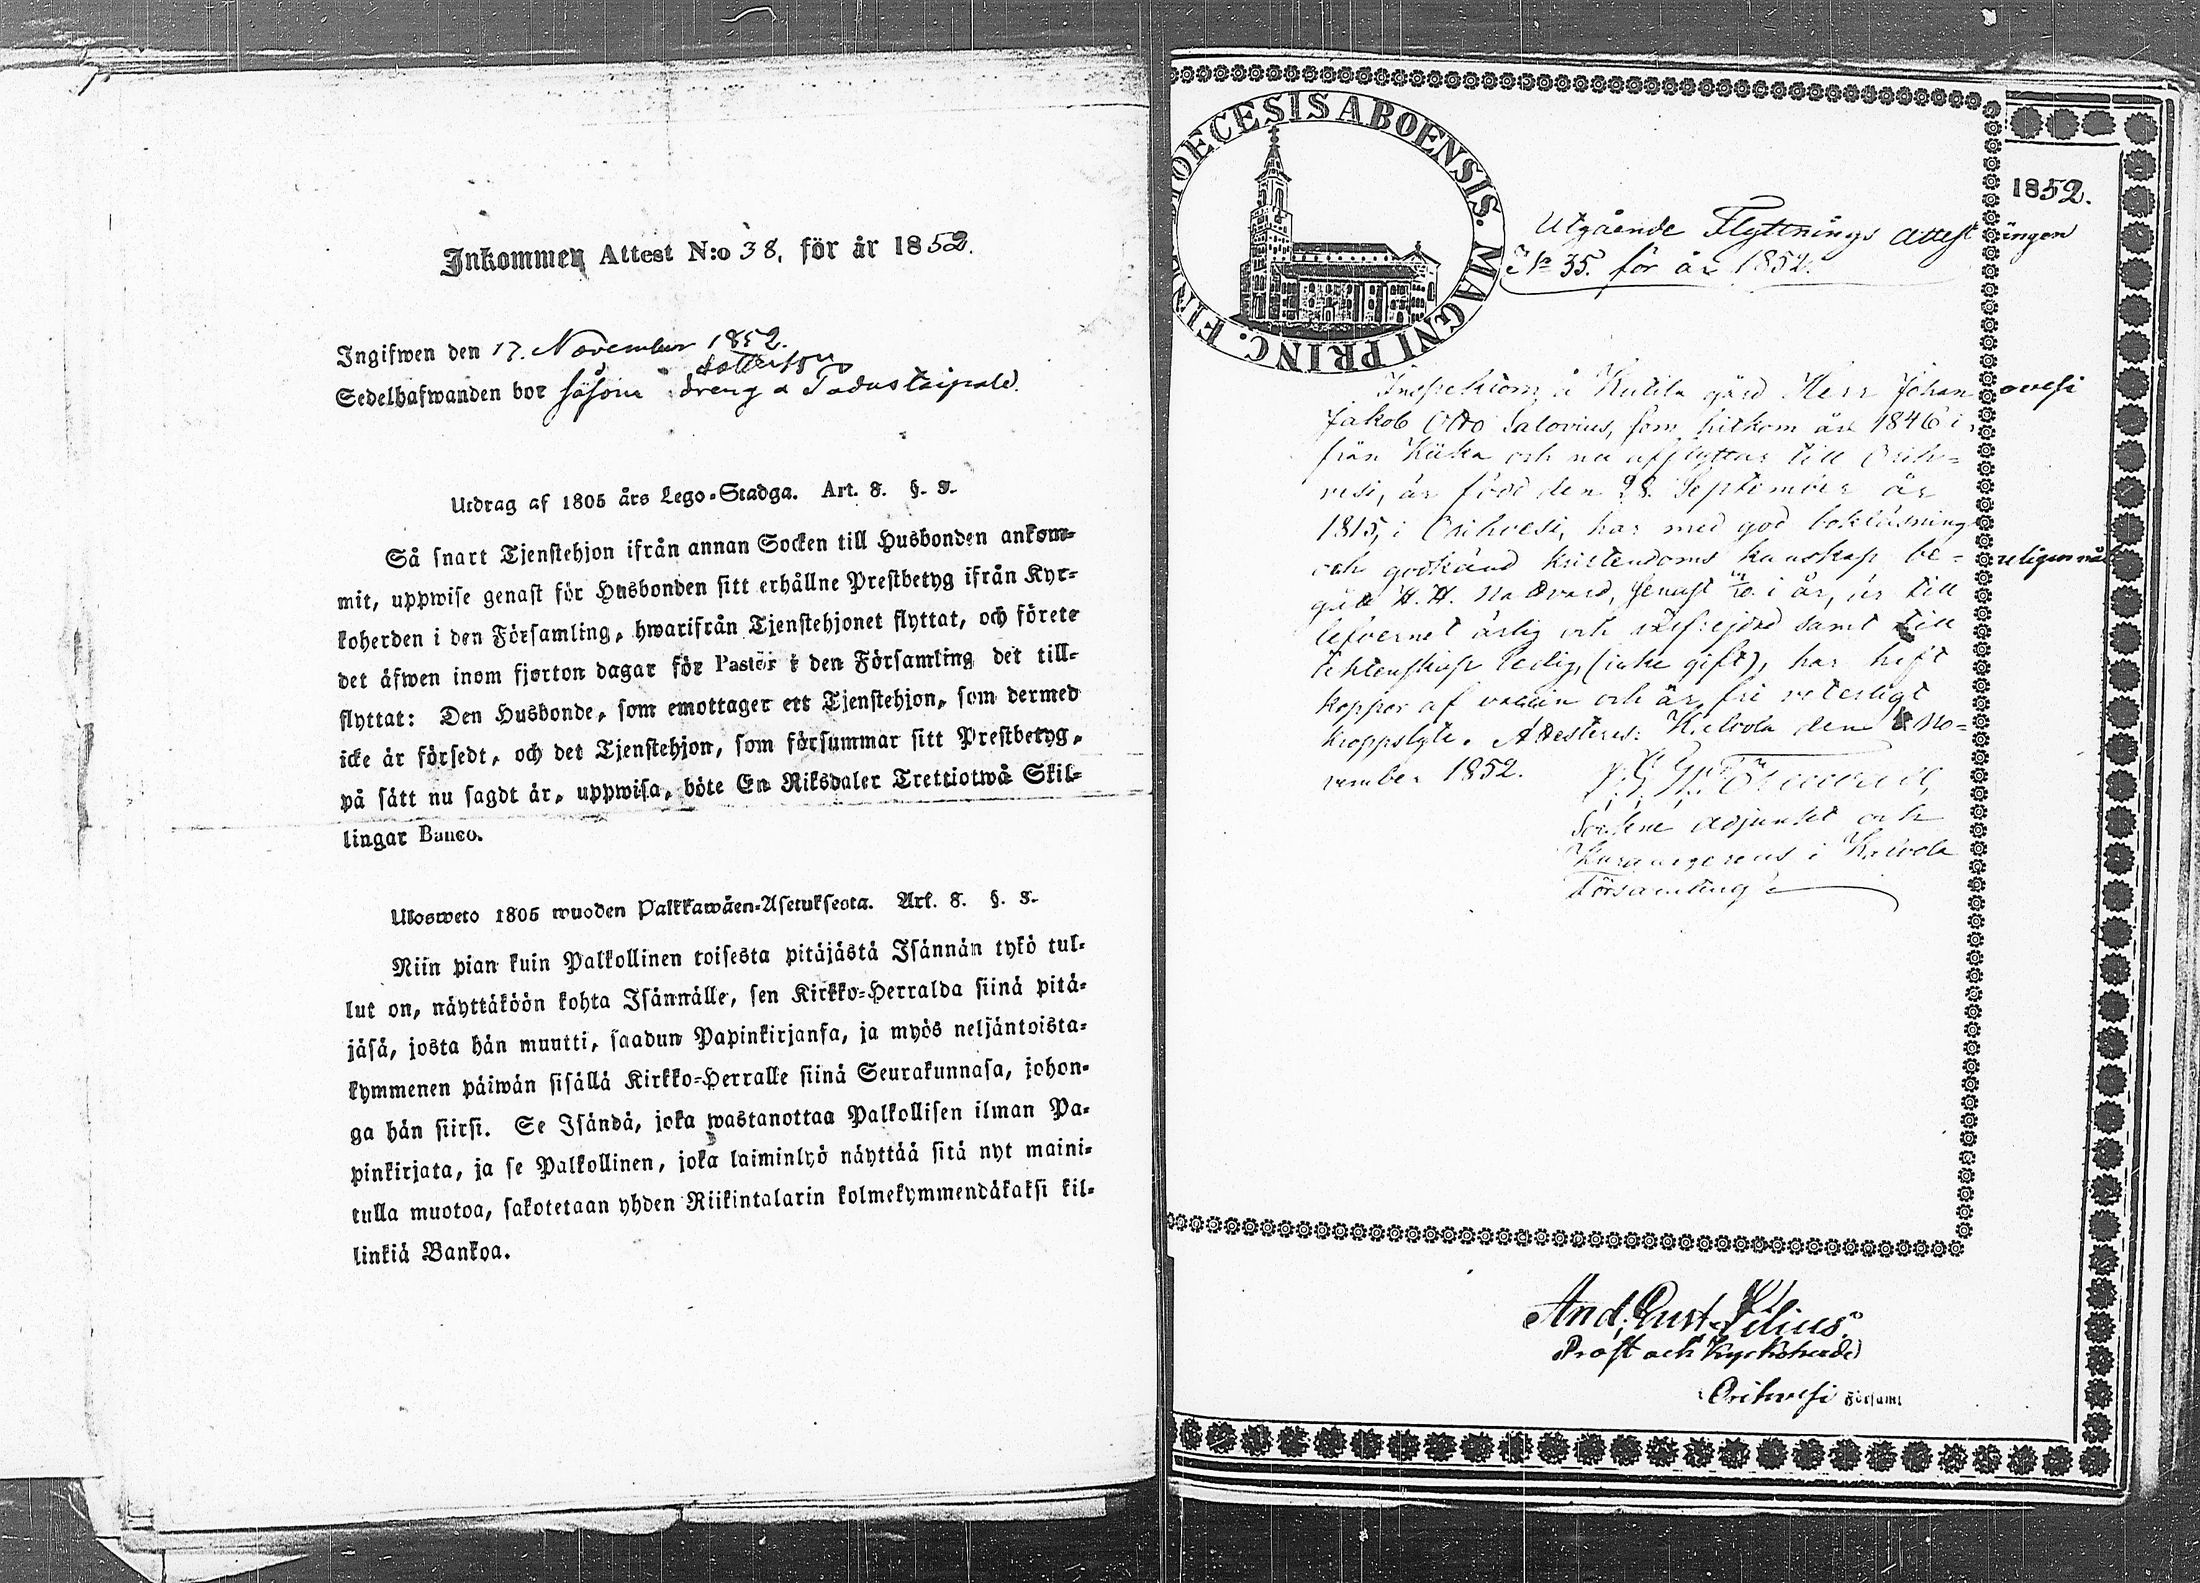 Inkommen Attest N:o 38, för år 1852.
Ingifwen den 17. November 1852.
Sedelhafwanden bor såsom dreng a
Utdrag af 1805 års Lego-Stadga. Art. 8. §. 3.
Så snart Tjenstehjon ifrån annan Socken till Husbonden ankom-
mit, uppwise genast för Husbonden sitt erhållne Prestbetyg ifrån Kyr-
koherden i den Församling, hwarifrån Tjenstehjonet flyttat, och förete
det äfwen inom fjorton dagar för Pastor i den Församling det till-
flyttat: Den Husbonde, som emottager ett Tjenstehjon, som dermed
icke är försedt, och det Tjenstehjon, som försummar sitt Prestbetyg,
på sätt nu sagdt är, uppwisa, böte En Riksdaler Trettiotwå Skil-
lingar Banco.
Ulosweto 1805 wuoden Palkkawäen-Asetuksesta. Art. 8. §. 3.
Niin pian kuin Palkollinen toisesta pitäjästä Isännän tykö tul-
lut on, näyttäköön kohta Isännälle, sen Kirkko-Herralda siinä pitä-
jäsä, josta hän muutti, saadun Papinkirjansa, ja myös neljäntoista-
kymmenen päiwän sisällä Kirkko-Herralle siinä Seurakunnasa, johon-
ga hän siirsi. Se Isändä, joka wastanottaa Palkollisen ilman Pa-
pinkirjata, ja se Palkollinen, joka laiminlyö näyttää sitä nyt maini-
tulla muotoa, sakotetaan yhden Riikintalarin kolmekymmendäkaksi kil-
linkiä Bankoa.
DIOECESIS ABOENSIS. MAGNI PRINC. FIN
1852.
Utgående Flyttnings Attest ingen
No 35. för år 1852.
Inspektorn å Kutila gård Herr Johan ovesi
Jakob Otto Salovius, som hitkom år 1846 i
från Kiika och nu afflyttar till Orih-
vesi, är född den 28. September år
1815, i Orihvesi, har med god bokläsning
och godkänd kristendoms kunskap be-
gått H. H. Nattvard, senast i år, är till
lefvernet ärlig och välfrejdad samt till
ektenskap ledig, (icke gift), har haft
koppor af vaccin och är fri veterligt
kroppslyte. Attesteras: Kalvola den No-
vember 1852.
Sockne adjunkt och
i Kalvola
Församling
And. Gust. Lilius.
Prost och Kyrkoherde
i Orihvesi Församl